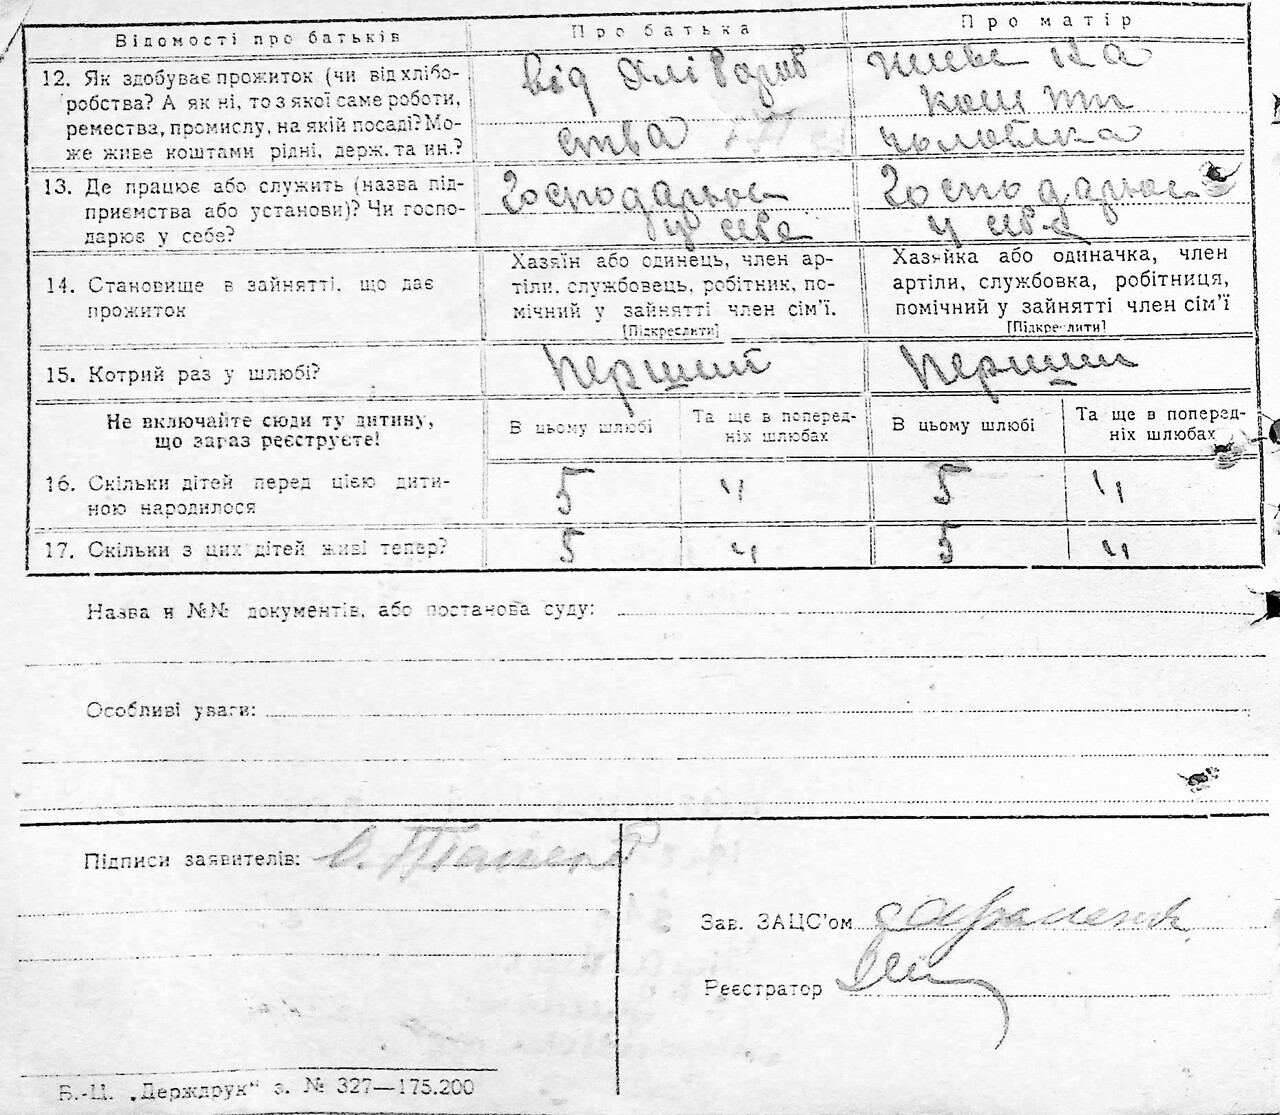 Відомості про батьків
Про батька
Про матір
12. Як здобуває прожиток (чи від хлібо-
робства? А як ні, то з якої саме роботи,
ремества, промислу, на якій посаді? Мо-
же живе коштами рідні, держ. та ин.?
від хлібороб
ства
живе на
кошти
чоловіка
13. Де працює або служить (назва під-
приємства або установи)? Чи госпо-
дарює у себе?
Господарює
у себе
Господарює
у себе
14. Становище в зайнятті, що дає
прожиток
Хазяїн або одинець, член ар-
тіли, службовець, робітник, по-
мічний у зайнятті член сім'ї.
[Підкреслити]
Хазяйка або одиначка, член
артіли, службовка, робітниця,
помічний у зайнятті член сім'ї
[Підкреслити]
15. Котрий раз у шлюбі?
перший
перший
Не включайте сюди ту дитину,
що зараз реєструєте!
В цьому шлюбі
Та ще в поперед-
ніх шлюбах
В цьому шлюбі
Та ще в поперед-
ніх шлюбах
16. Скільки дітей перед цією дити-
ною народилося
5 " 5 "
17. Скільки з цих дітей живі тепер?
5 " 5 "
Назва й №№ документів, або постанова суду:
Особливі уваги:
Підписи заявителів:
Зав. ЗАЦС'ом
Реєстратор
Б.-Ц. „Держдрук" з. № 327—175.200